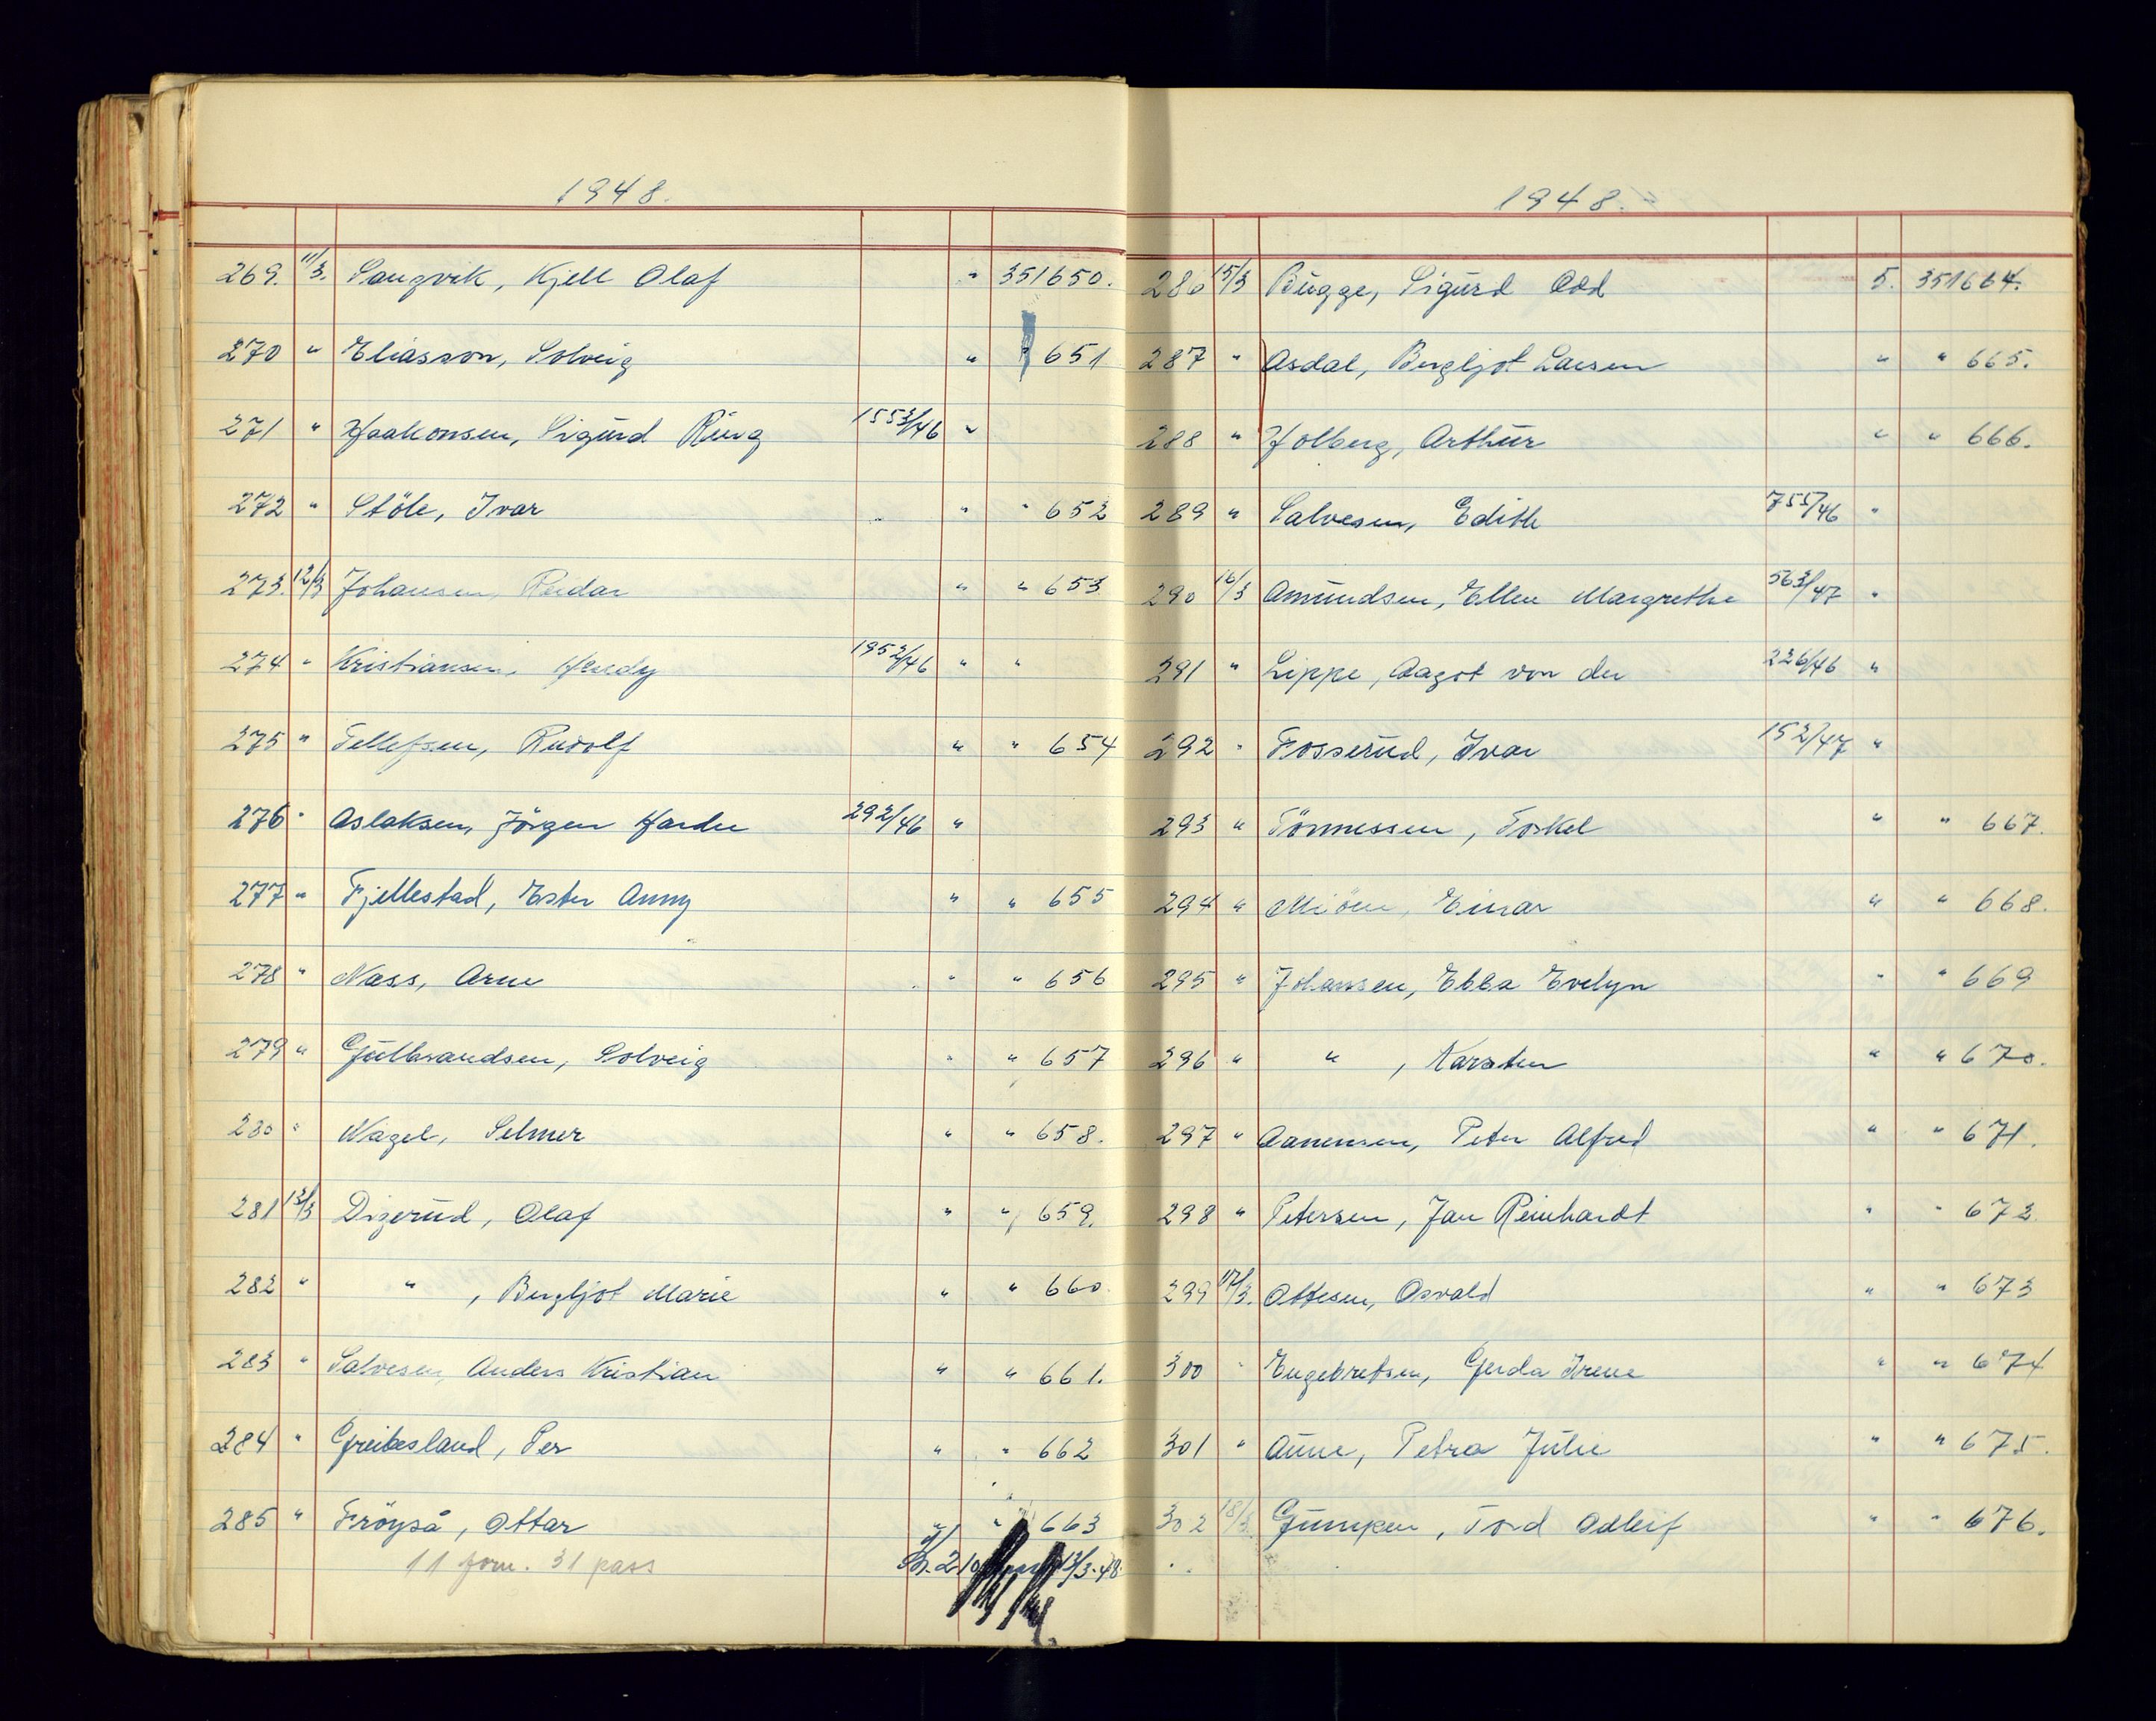 1948.
269. 11/3. Langvik, Kjell Olaf " 351650.
270 " Eliasson, Solveig " " 651
271 " Haakonsen, Sigurd Ring 1553/46 "
272 " Stöle, Ivar " " 652
273. 12/3 Johansen, Reidar " " 653
274 " Kristiansen, 1952/46 " "
275 " Tellefsen, Rudolf " " 654
276 " Aslaksen, Jörgen Harder 292/46 "
277 " Fjellestad, Ester Anny " " 655
278 " Næss, Arne " " 656
279 " Gulbrandsen, Solveig " " 657
280 " Nagel, Selmer " " 658.
281 13/3 Dizerud, Olaf " " 659.
282 " " , Bergljot Marie " " 660.
283 " Salvesen, Anders Kristian " " 661.
284 " Greibesland, Per " " 662
285 " Fröyså, Ottar " " 663
11 forn. 31 pass 13/3.48.
1948.
286 15/3 Bugge, Sigurd Odd 5. 351664.
287 " Asdal, Bergljot Larsen " " 665.
288 " Holberg, Arthur " " 666.
289 " Salvesen, Edith 755/46 "
290 16/3 Amundsen, Ellen Margrethe 563/47 "
291 " Lippe, Aagot von der 226/46 "
292 " Fosserud, Ivar 152/47 "
293 " Tönnessen, Torkel " " 667.
294 " Miöen, Einar " " 668.
295 " Johansen, Ebba Evelyn " " 669
296 " " , Karsten " " 670.
297 " Aanensen, Peter Alfred " " 671.
298 " Petersen, Jan Reinhardt " " 672.
299 17/3. Ottesen, Osvald " " 673
300 " Engebretsen, Gerda Irene " " 674
301 " Aune, Petra Julie " " 675.
302 18/3. Tord Odleif " " 676.